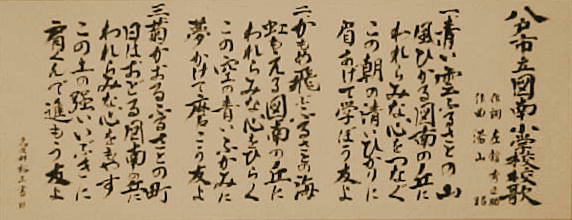 八戸市立図南小学校校歌
作詞 左舘秀之助
作曲 湯山 昭
一、青い雲ふるさとの山
風ひかる図南の丘に
われらみな心をつなぐ
この朝の清いひかりに
眉あげて学ぼう友よ
二、かもめ飛ぶふるさとの海
虹もえる図南の丘に
われらみな心をひらく
この空の青いふかみに
夢かけて磨こう友よ
三、菊かおるふるさとの町
日はおどる図南の丘に
われらみな心をもやす
この土の強いいぶきに
肩くんで進もう友よ